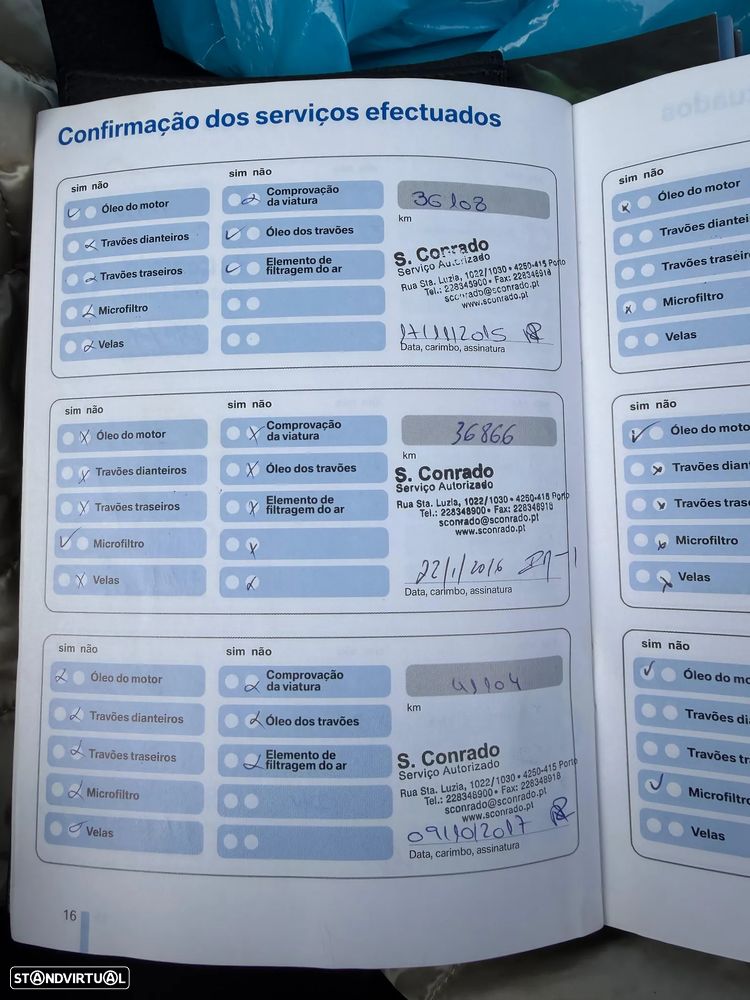 Confirmação dos serviços efectuados
sim não
sim não
Óleo do motor
Travões dianteiros
Travões traseiros
Microfiltro
Velas
Comprovação
da viatura
Óleo dos travões
Elemento de
filtragem do ar
36108
km
S. Conrado
Serviço Autorizado
Rua Sta. Luzia, 1022/1030 • 4250-415 Porto
Tel.: 228346900 • Fax: 228346918
sconrado@sconrado.pt
www.sconrado.pt
17/11/2015
Data, carimbo, assinatura
sim não
sim não
Óleo do motor
Travões dianteiros
Travões traseiros
Microfiltro
Velas
Comprovação
da viatura
Óleo dos travões
Elemento de
filtragem do ar
36866
km
S. Conrado
Serviço Autorizado
Rua Sta. Luzia, 1022/1030 • 4250-415 Porto
Tel.: 228346900 • Fax: 228346918
sconrado@sconrado.pt
www.sconrado.pt
22/1/2016
Data, carimbo, assinatura
sim não
sim não
Óleo do motor
Travões dianteiros
Travões traseiros
Microfiltro
Velas
Comprovação
da viatura
Óleo dos travões
Elemento de
filtragem do ar
41104
km
S. Conrado
Serviço Autorizado
Rua Sta. Luzia, 1022/1030 • 4250-415 Porto
Tel.: 228346900 • Fax: 228346918
sconrado@sconrado.pt
www.sconrado.pt
09/10/2017
Data, carimbo, assinatura
16
sim não
Óleo do motor
Travões diantei
Travões traseir
Microfiltro
Velas
sim não
Óleo do moto
Travões dian
Travões tras
Microfiltro
Velas
sim não
Óleo do mo
Travões di
Travões tr
Microfiltr
Velas
STANDVIRTUAL